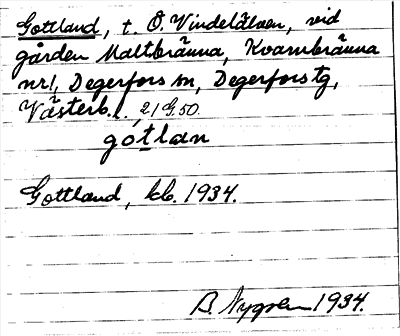 Gottland, t. Ö. Vindelälven, vid
gården Maltbränna, Kvarnbränna
nr 1, Degerfors sn, Degerfors tg,
Västerb. l., 21 G. 50.
gotlan
Gottland, kb. 1934.
B. Nygren 1934.